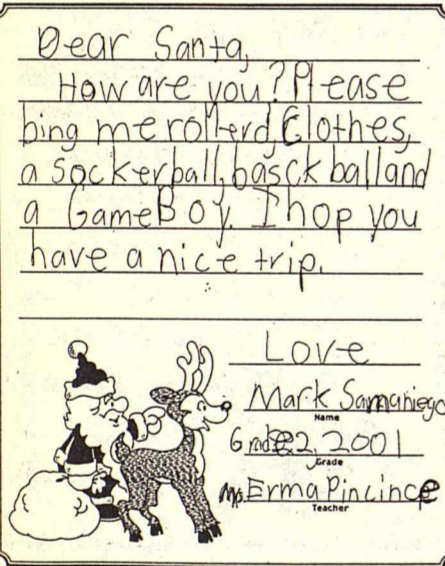 Dear Santa,
How are you? Please
bing me rollerd, Clothes,
a sockerball, basck ball and
a GameBoy. I hop you
have a nice trip.
Love
Mark Samaniego
Name
Grade 2, 2001
Grade
Mrs. Erma Pincince
Teacher